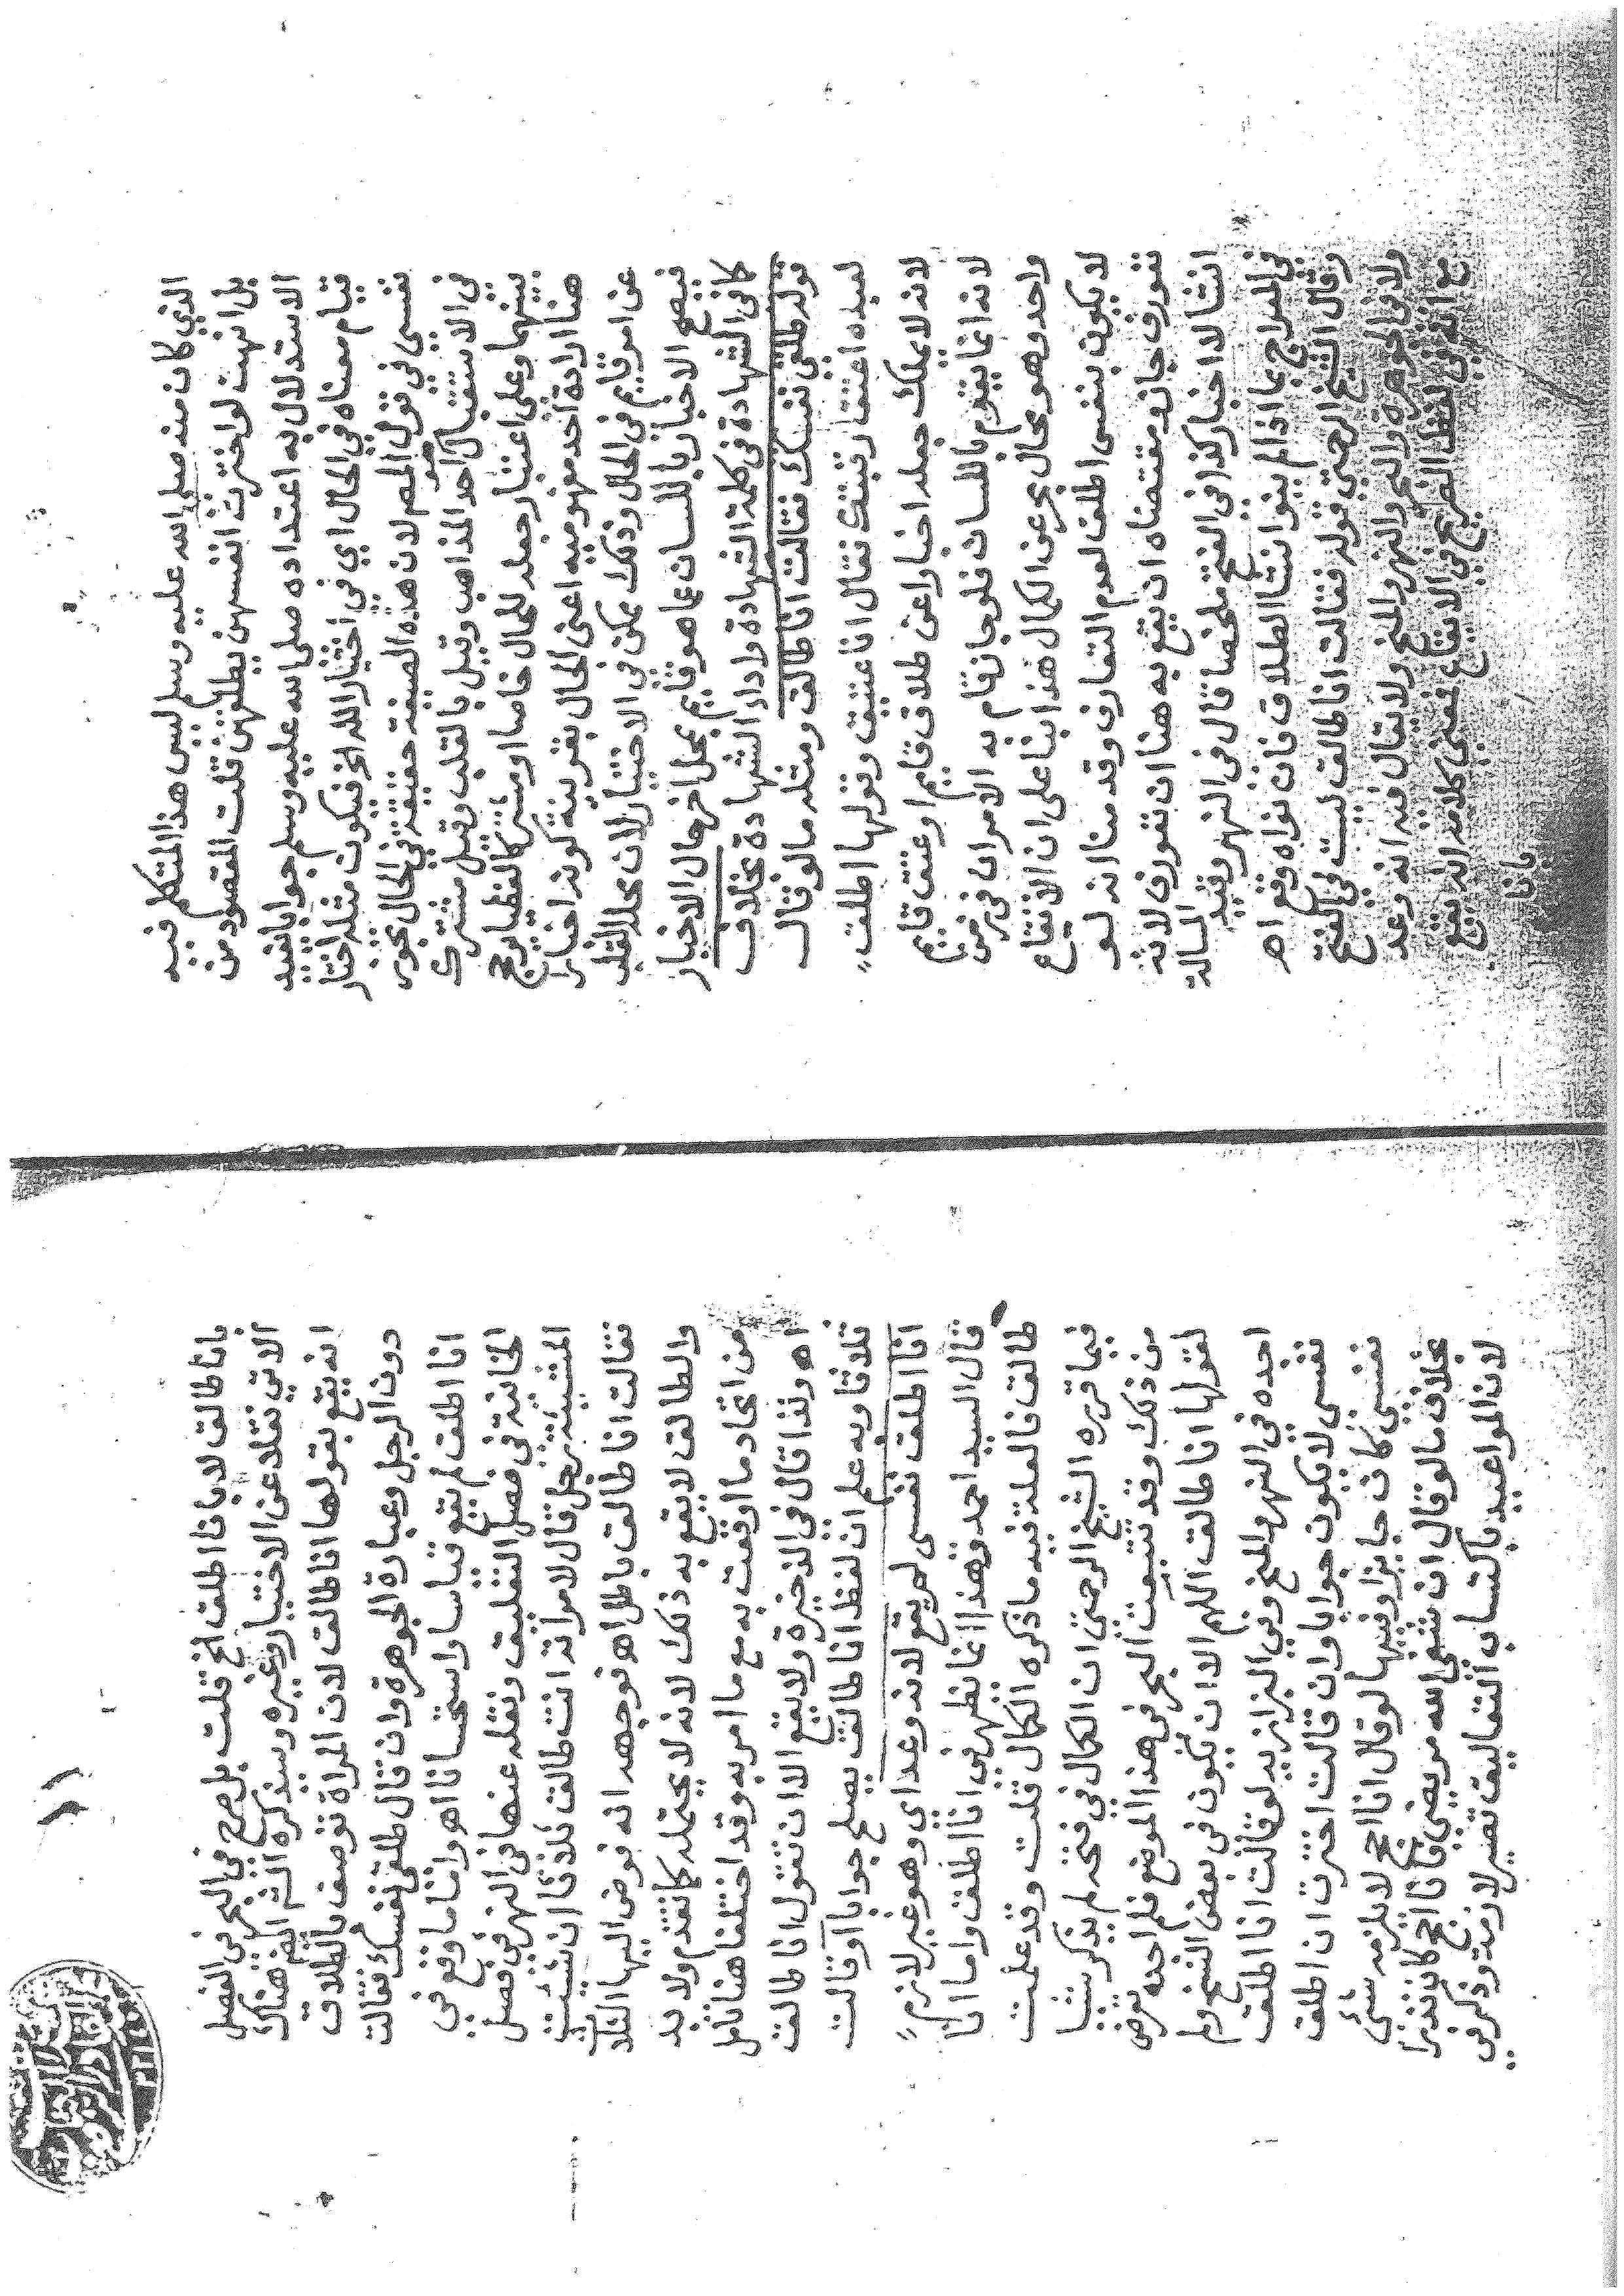 الذي كان منه صلى الله عليه وسلم ليس هذا المتكلم فيه
بل انهن لو اخترن انفسهن يطلقهن قلت المقصود من
الاستدلال به اعتداده صلى الله عليه وسلم جوابا يفيد
قيام معناه في الحال اي في اختيار الله الخ فيكون مثله اختار
نفسي في قول المص لان هذه الصيغة حقيقة في الحال تجوز
في الاستقبال احد المذاهب وقيل بالقلب وقيل مشترك
بينهما وعلى اعتبار جعله للحال خاصا او مشتركا لفظيا يرجح
هنا ارادة احد مفهوميه اعني الحال بقرينة كونه اخبارا
عن امر قايم في الحال وذلك ممكن في الاختيار لان محله القلب
فيصح الاخبار باللسان عما هو قايم بمحل اخر حال الاخبار
كما في الشهادة في كلمة الشهادة واداء الشهادة بخلاف
قوله طلقي نفسك فقالت انا طالق ومثله ما لو قال
لعبده اعتق رقبتك فقال انا عتيق وقولها اطلق
لانه لا يمكن جعله اخبارا عن طلاق قايم او عتق قايم
لانه انما يقوم باللسان فلو جاز قام به الامران في زمن
واحد وهو محال بحر عن الكمال هذا بنا على ان الايقاع
لا يكون بنفس اطلق لعدم التعارف وقد منا انه لو
تعورف جاز ومقتضاه ان يقع به هنا ان تعورف لانه
انشا لا اخبار كذا في الفتح ملخصا قال في النهر وقيد المسالة
في المعراج بما اذا لم ينو انشا الطلاق فان نواه وقع اهـ
وقال الشيخ الرحمتي قوله فقالت انا طالق ليست في الفتح
ولا في الجوهرة والبحر والنهر والمنح ولا يقال فيه انه وعد
مع انه في لفظ الصريح في الايقاع فمقتضى كلامه انه يقع
بانا
١١
بانا طالق لا بانا اطلق الخ قلت بل صرح في البحر في الفصل
الاتي نقلا عن الاختيار وغيره وسيذكره الشم ايضا هناك
انه يقع بقولها انا طالق لان المراة توصف بالطلاق
دون الرجل وعبارة الجوهرة وان قال طلقي نفسك فقالت
انا اطلق لم يقع قياسا واستحسانا اهـ وانما وقع في
الخانية في فصل التعليق ونقله عنها في النهر في فصل
المشيئة رجل قال لامراته انت طالق ثلاثا ان شئت
فقالت انا طالق باطل اهـ فوجهه انه فوض اليها الثلاث
والطالق لا يقع به ذلك لانه لا يحتمله كما تقدم ولا بد
من اتحاد ما اوقعت به مع ما امر به وقد اختلفا هنا تامل
اهـ ولذا قال في الذخيرة ولا يقع الا ان تقول انا طالق
ثلاثا وبه علم ان لفظ انا طالق يصلح جوابا او قالت
انا اطلق نفسي لم يقع لانه وعد اي وهو غير لازم
قال السيد احمد وهذا انما يظهر في انا اطلق واما انا
طالق فالعلة فيه ما ذكره الكمال قلت وقد علمت
فيما قرره الشيخ الرحمتي ان الكمال في فتحه لم يذكر شيا
من ذلك وقد تتبعت البحر في هذا الموضع فلم اجده تعرض
لقولها انا طالق اللهم الا ان يكون في بعض النسخ ولم
اجده في النهر والمنح وفي البزازية لو قالت انا اطلق
نفسي لا يكون جوابا وان قالت اخترت ان اطلق
نفسي كان جايزا وفيها لو قال انا احج لا يلزمه شئ
بخلاف ما لو قال ان شفى الله مريضي فانا احج كان نذرا
لان المواعيد باكتساب التعاليق تصير لازمة وذكر في